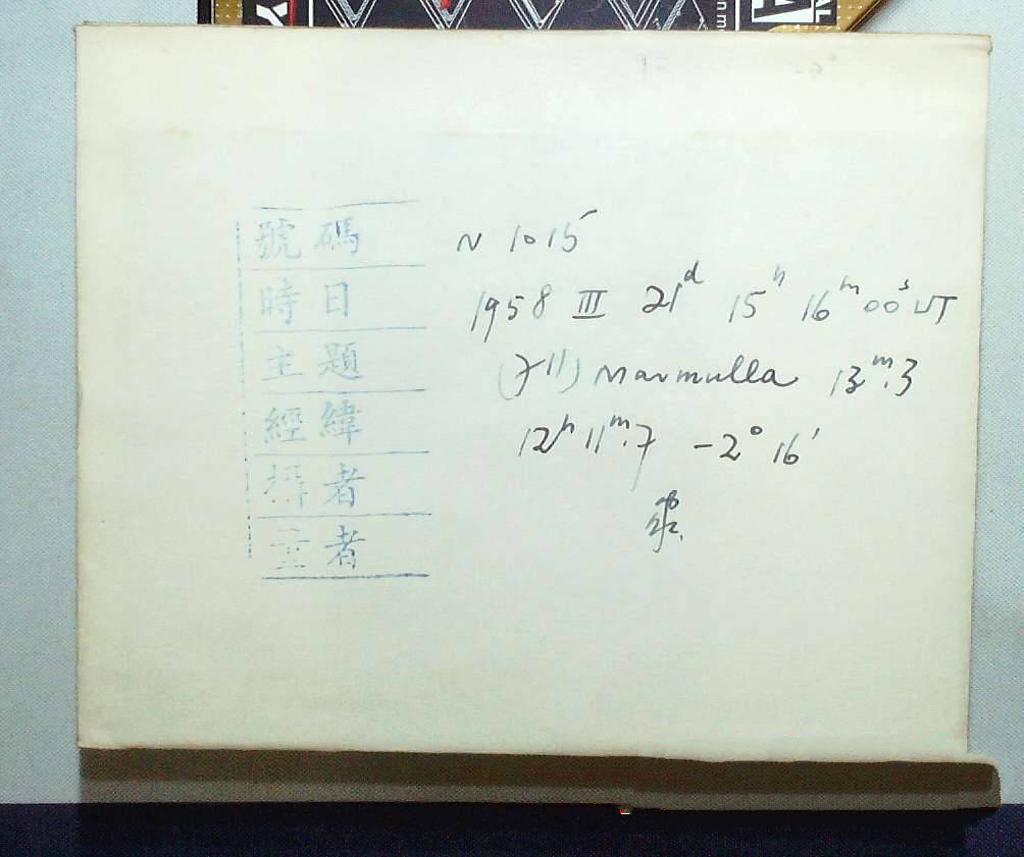 號碼 N 1015
時日 1958 III 21d 15h 16m 00s UT
主題 (711) Marmulla 13m.3
經緯 12h 11m.7 -2° 16'
攝者
量者